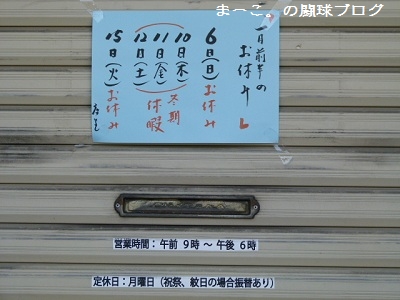 まーこ。の闘球ブログ
一月前半の
お休み
6日(日)お休み
10日(木)
11日(金)
12日(土)
冬期
休暇
15日(火)お休み
店主
営業時間：午前 9時 ～ 午後 6時
定休日：月曜日（祝祭、紋日の場合振替あり）